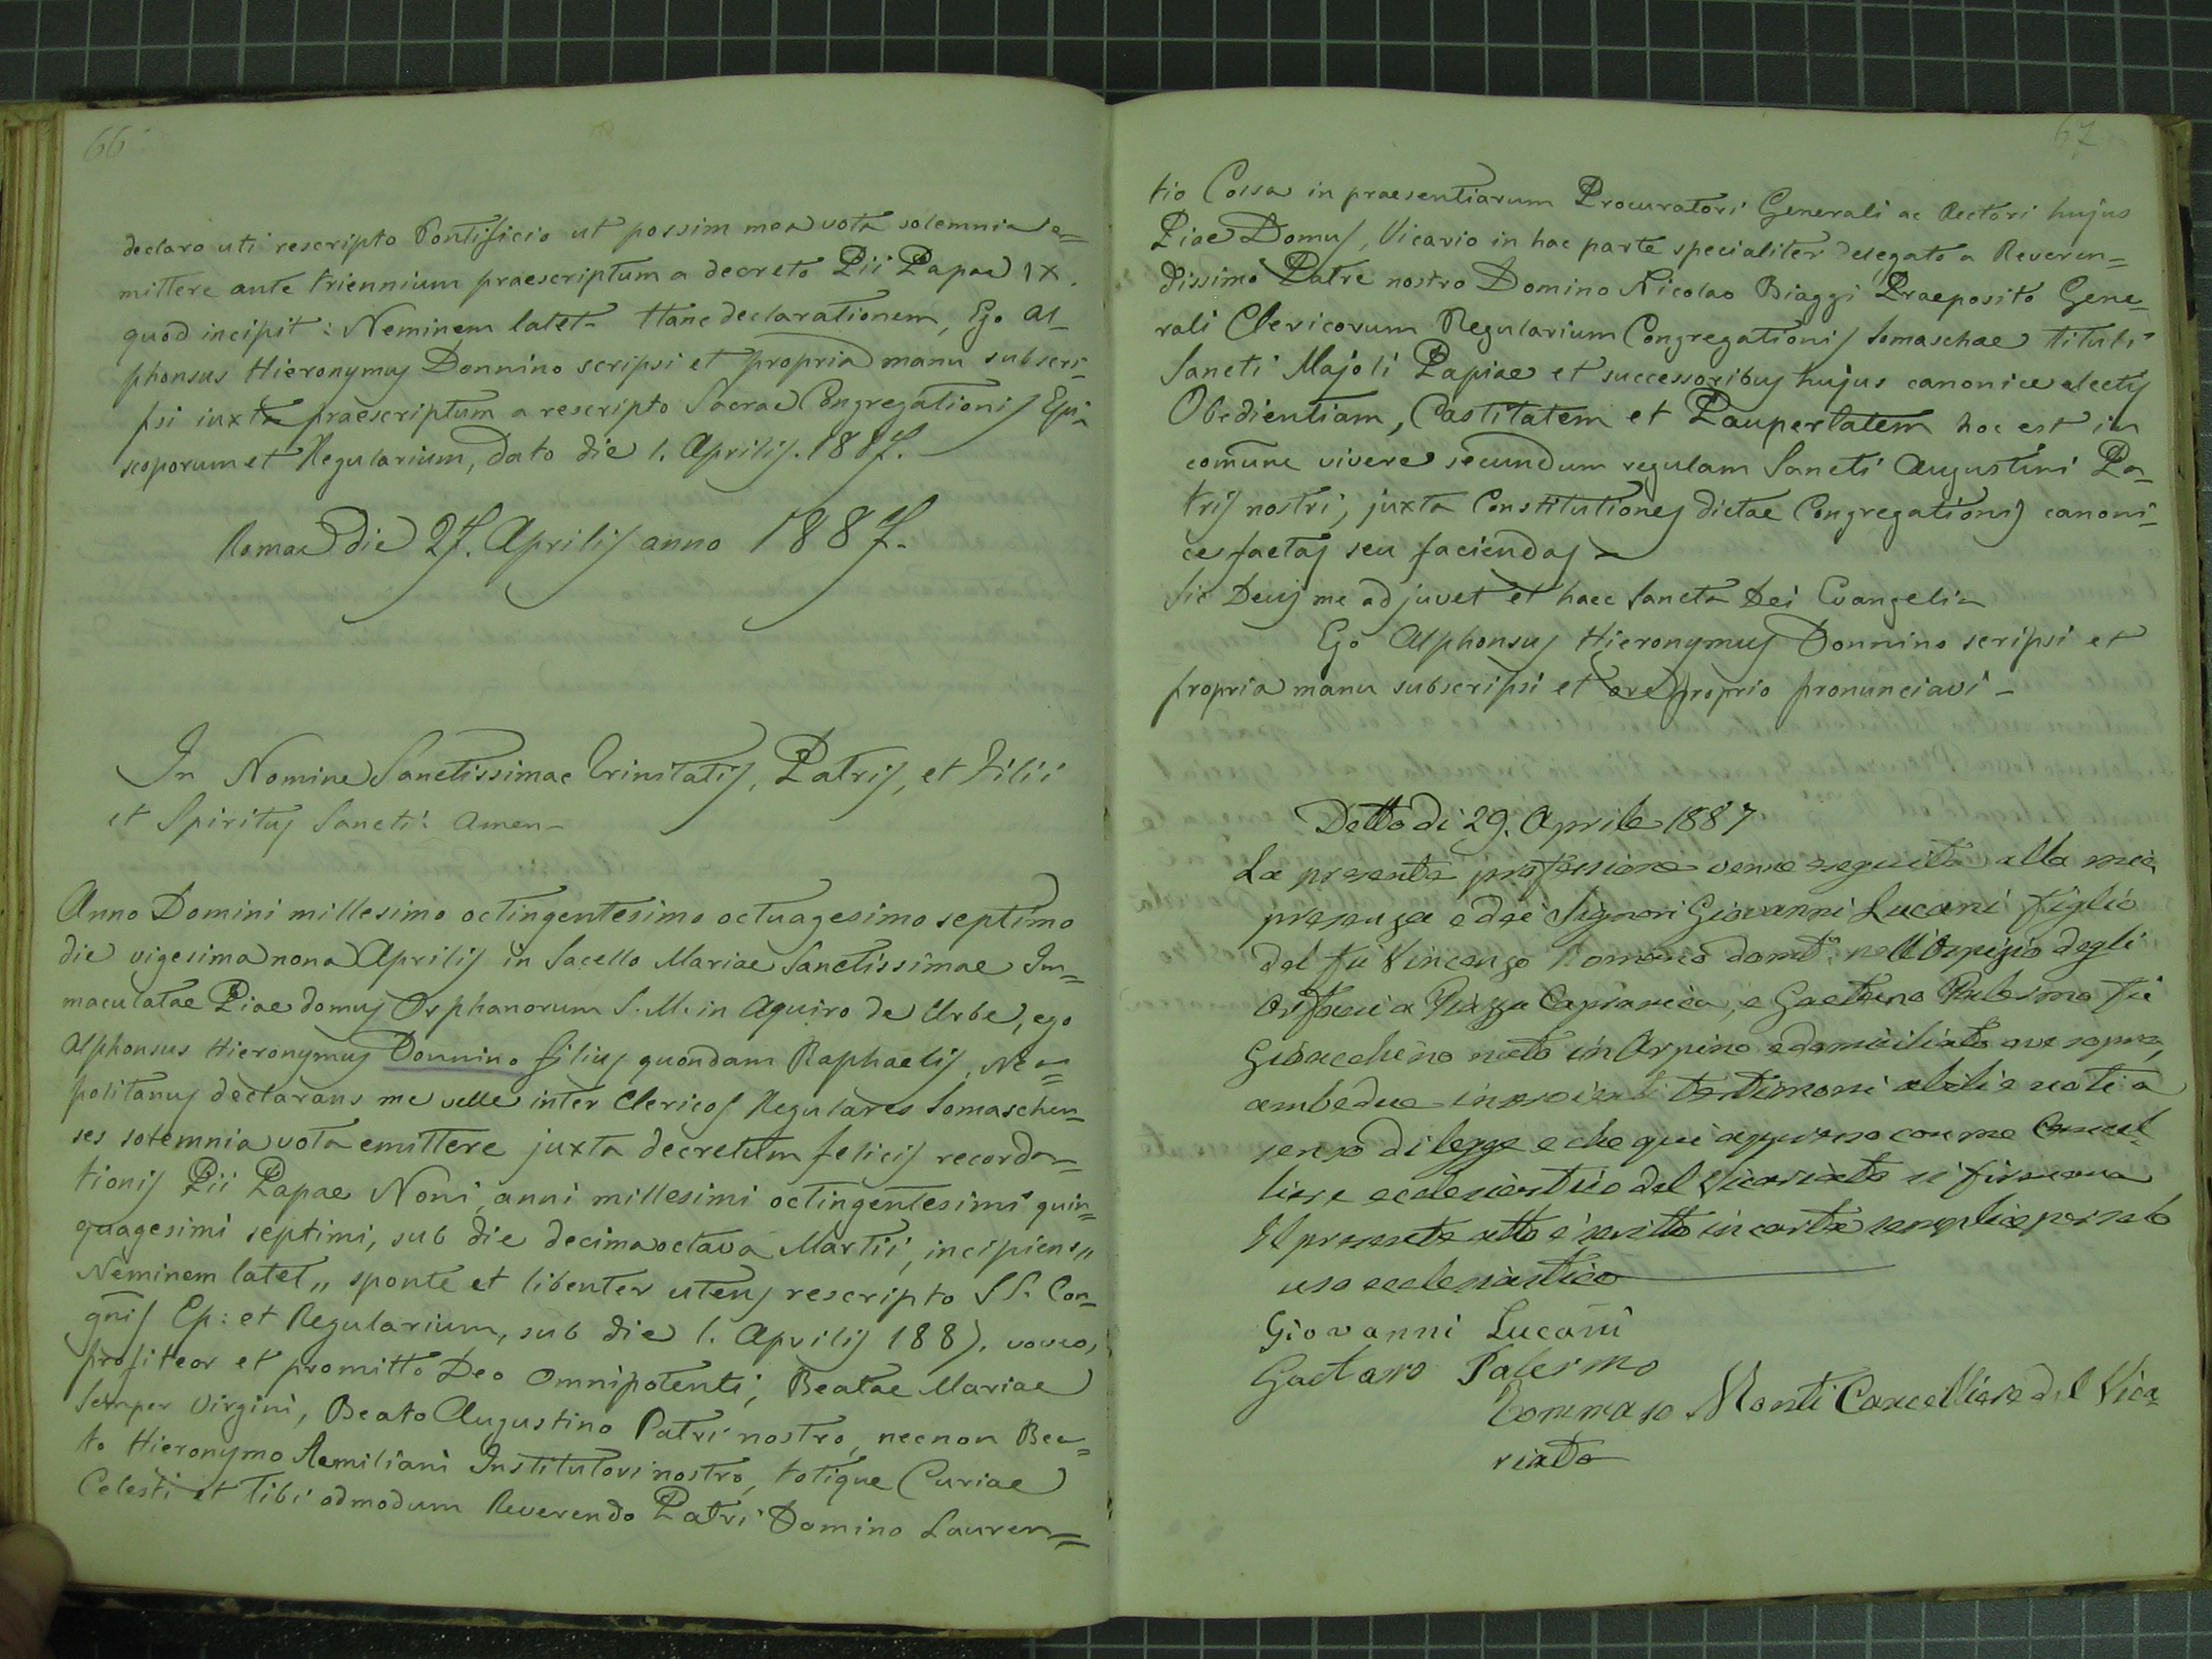 66
declaro uti rescripto Pontificio ut possim mea vota solemnia e=
mittere ante triennium praescriptum a decreto Pii Papae IX.
quod incipit: Neminem latet - Hanc declarationem, Ego Al_
phonsus Hieronymus Donnino scripsi et propria manu subscri_
psi iuxta praescriptum a rescripto Sacrae Congregationis Epi=
scoporum et Regularium, dato die 1. Aprilis. 1887. -
Romae die 27. Aprilis anno 1887.
In Nomine Sanctissimae Trinitatis, Patris, et Filii
et Spiritus Sancti: Amen -
Anno Domini millesimo octingentesimo octuagesimo septimo
die vigesima nona Aprilis in Sacello Mariae Sanctissimae Im=
maculatae Piae domus Orphanorum S. M. in Aquiro de Urbe, ego
Alphonsus Hieronymus Donnino filius quondam Raphaelis, Nea=
politanus declarans me velle inter Clericos Regulares Somaschen=
ses solemnia vota emittere juxta decretum felicis recorda=
tionis Pii Papae Noni, anni millesimi octingentesimi quin=
quagesimi septimi, sub die decimaoctava Martii, incipiens „
Neminem latet „ sponte et libenter utens rescripto SS. Con=
gnis Ep: et Regularium, sub die 1. Aprilis 1887. voveo,
profiteor et promitto Deo Omnipotenti, Beatae Mariae
Semper Virgini, Beato Augustino Patri nostro, necnon Bea=
to Hieronymo Aemiliani Institutori nostro, totique Curiae
Celesti et tibi admodum Reverendo Patri Domino Lauren=
67
tio Cossa in praesentiarum Procuratori Generali ac Rectori hujus
Piae Domus, Vicario in hac parte specialiter delegato a Reveren=
dissimo Patre nostro Domino Nicolao Biaggi Praeposito Gene_
rali Clericorum Regularium Congregationis Somaschae tituli
Sancti Majoli Papiae et successoribus hujus canonice electis
Obedientiam, Castitatem et Paupertatem hoc est in
comune vivere secundum regulam Sancti Augustini Pa_
tris nostri, juxta Constitutiones dictae Congregationis canoni_
ce factas seu faciendas -
Sic Deus me adjuvet et haec Sancta Dei Evangelia
Ego Alphonsus Hieronymus Donnino scripsi et
propria manu subscripsi et ore proprio pronunciavi -
Detto di 29. Aprile 1887
La presente professione venne eseguita alla mia
presenza e dei Signori Giovanni Lucani figlio
del fu Vincenzo Romano domto. nell'Ospizio degli
Orfani a Piazza Capranica, e Gaetano Palermo fu
Gioacchino nato in Arpino e domiciliato ove sopra,
ambedue testimoni abili e noti a
senso di legge e che qui appresso con me Cancel_
liere ecclesiastico del Vicariato si firmano
Il presente atto è scritto in carta semplice per solo
uso ecclesiastico
Giovanni Lucani
Gaetano Palermo
Tommaso Monti Cancelliere del Vica=
riato